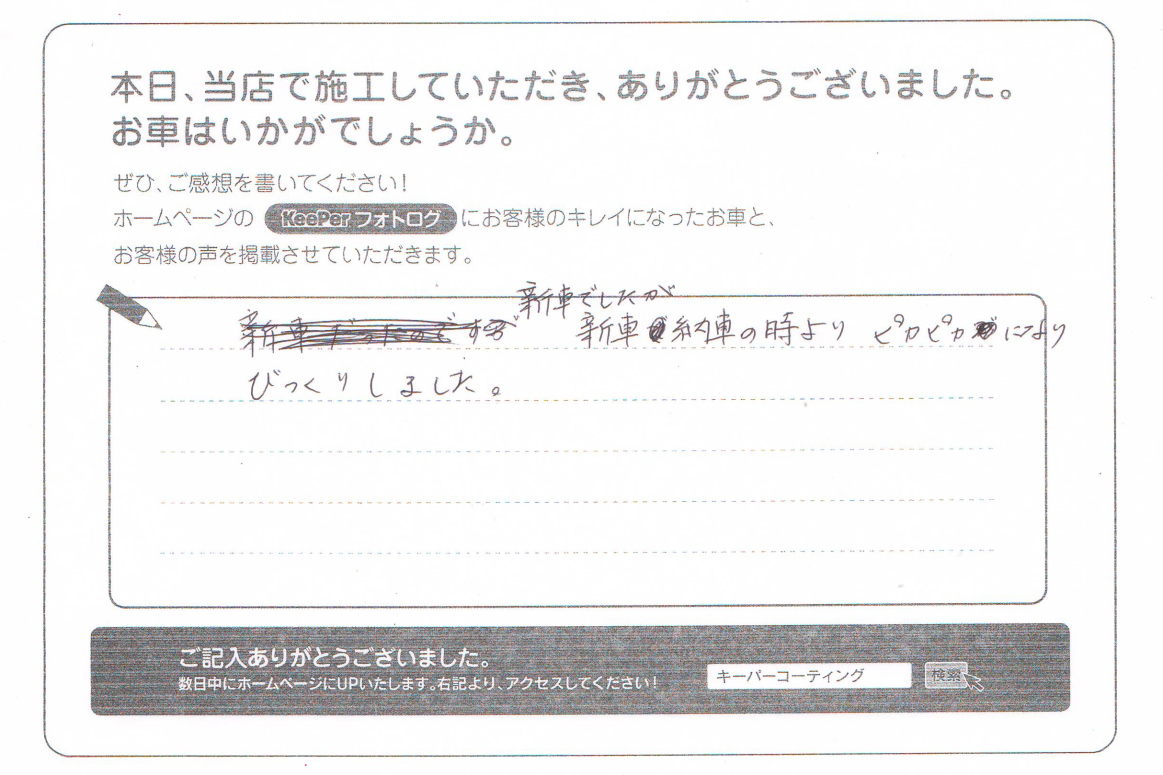 本日、当店で施工していただき、ありがとうございました。
お車はいかがでしょうか。
ぜひ、ご感想を書いてください！
ホームページの KeePer フォトログ にお客様のキレイになったお車と、
お客様の声を掲載させていただきます。
新車でしたが
新車だったのですが 新車 納車の時より ピカピカ になり
びっくりしました。
ご記入ありがとうございました。
数日中にホームページにUPいたします。右記より、アクセスしてください！
キーパーコーティング 検索